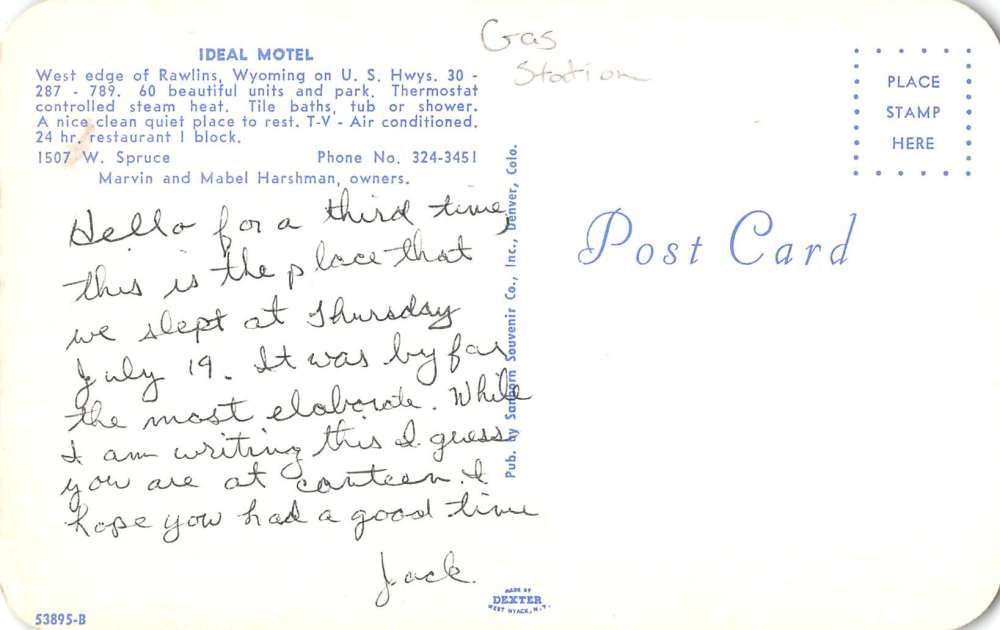 Gas
Station
IDEAL MOTEL
West edge of Rawlins, Wyoming on U. S. Hwys. 30 -
287 - 789. 60 beautiful units and park. Thermostat
controlled steam heat. Tile baths, tub or shower.
A nice clean quiet place to rest. T-V - Air conditioned.
24 hr. restaurant 1 block.
1507 W. Spruce Phone No. 324-3451
Marvin and Mabel Harshman, owners.
Hello for a third time,
this is the place that
we slept at Thursday
July 19. It was by far
the most elaborate. While
I am writing this I guess
you are at canteen. I
hope you had a good time
Jack.
53895-B
Pub. by Sanborn Souvenir Co., Inc., Denver, Colo.
MADE BY
DEXTER
WEST NYACK, N.Y.
PLACE
STAMP
HERE
Post Card